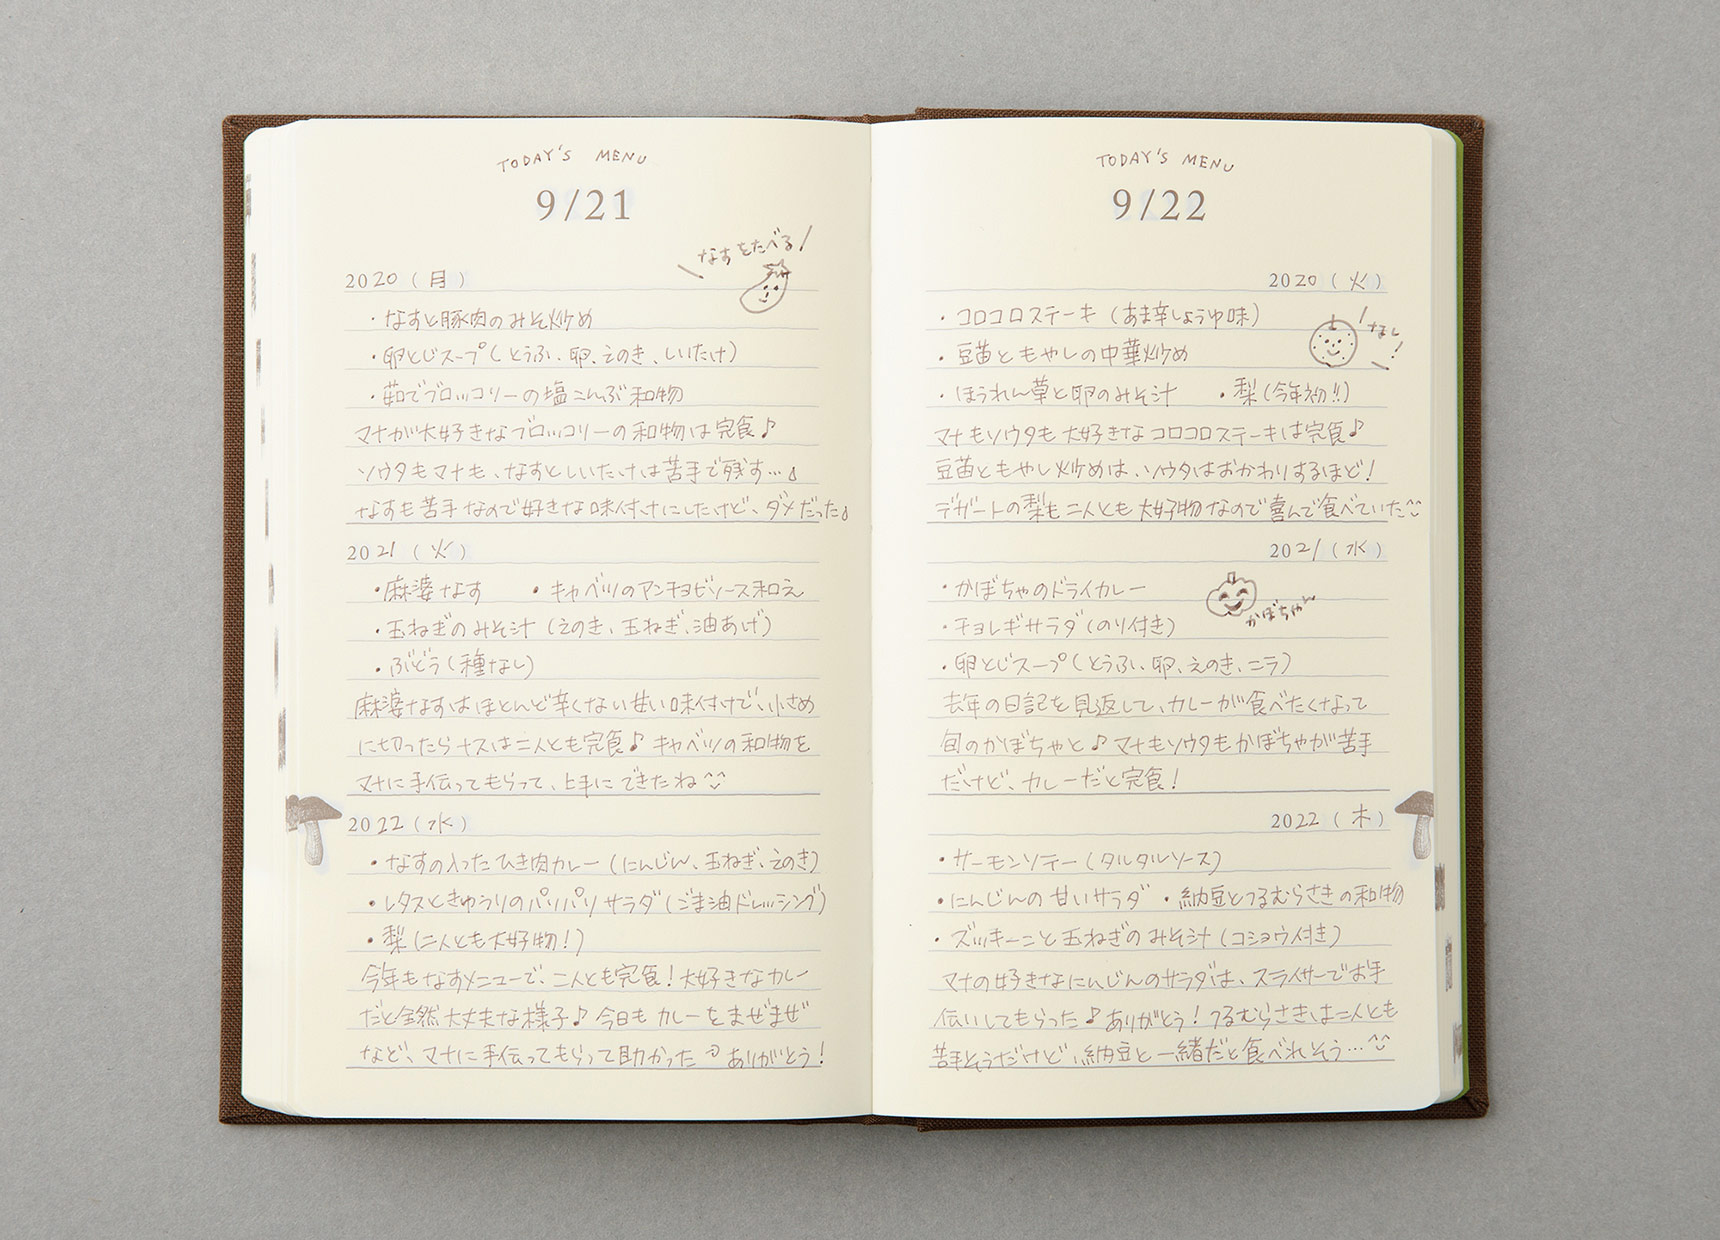 TODAY'S MENU
9/21
なすをたべる!
2020(月)
・なすと豚肉のみそ炒め
・卵とじスープ(とうふ、卵、えのき、しいたけ)
・茹でブロッコリーの塩こんぶ和物
マナが大好きなブロッコリーの和物は完食♪
ソウタもマナも、なすとしいたけは苦手で残す…
なすも苦手なので好きな味付けにしたけど、ダメだった
2021(火)
・麻婆なす ・キャベツのアンチョビソース和え
・玉ねぎのみそ汁(えのき、玉ねぎ、油あげ)
・ぶどう(種なし)
麻婆なすはほとんど辛くない甘い味付けで、小さめ
に切ったらナスは二人とも完食♪キャベツの和物を
マナに手伝ってもらって、上手にできたね^^
2022(水)
・なすの入ったひき肉カレー(にんじん、玉ねぎ、えのき)
・レタスときゅうりのパリパリサラダ(ごま油ドレッシング)
・梨(二人とも大好物!)
今年もなすメニューで、二人とも完食!大好きなカレー
だと全然大丈夫な様子♪今日もカレーをまぜまぜ
など、マナに手伝ってもらって助かった ありがとう!
TODAY'S MENU
9/22
2020(火)
・コロコロステーキ(あま辛しょうゆ味)
なし!
・豆苗ともやしの中華炒め
・ほうれん草と卵のみそ汁 ・梨(今年初!!)
マナもソウタも大好きなコロコロステーキは完食♪
豆苗ともやし炒めは、ソウタはおかわりするほど!
デザートの梨も二人とも大好物なので喜んで食べていた^^
2021(水)
・かぼちゃのドライカレー
かぼちゃん
・チョレギサラダ(のり付き)
・卵とじスープ(とうふ、卵、えのき、ニラ)
去年の日記を見返して、カレーが食べたくなって
旬のかぼちゃと♪マナもソウタもかぼちゃが苦手
だけど、カレーだと完食!
2022(木)
・サーモンソテー(タルタルソース)
・にんじんの甘いサラダ ・納豆とつるむらさきの和物
・ズッキーニと玉ねぎのみそ汁(コショウ付き)
マナの好きなにんじんのサラダは、スライサーでお手
伝いしてもらった♪ありがとう!つるむらさきは二人とも
苦手そうだけど、納豆と一緒だと食べれそう…^^